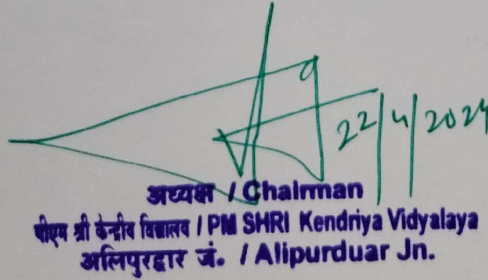 22/4/2024
अध्यक्ष / Chairman
पीएम श्री केन्द्रीय विद्यालय / PM SHRI Kendriya Vidyalaya
अलिपुरद्वार जं. / Alipurduar Jn.